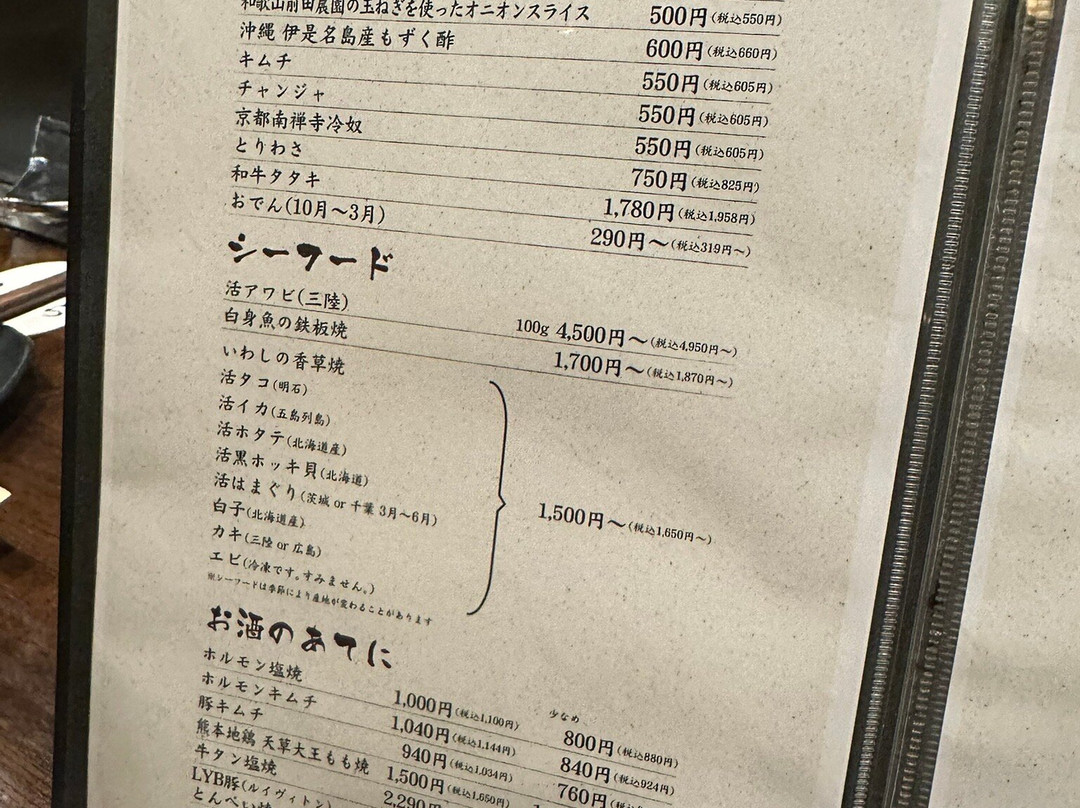 和歌山前田農園の玉ねぎを使ったオニオンスライス 500円(税込550円)
沖縄 伊是名島産もずく酢 600円(税込660円)
キムチ 550円(税込605円)
チャンジャ 550円(税込605円)
京都南禅寺冷奴 550円(税込605円)
とりわさ 750円(税込825円)
和牛タタキ 1,780円(税込1,958円)
おでん(10月～3月) 290円～(税込319円～)
シーフード
活アワビ(三陸) 100g 4,500円～(税込4,950円～)
白身魚の鉄板焼 1,700円～(税込1,870円～)
いわしの香草焼
活タコ(明石)
活イカ(五島列島)
活ホタテ(北海道産)
活黒ホッキ貝(北海道)
活はまぐり(茨城 or 千葉 3月～6月)
1,500円～(税込1,650円～)
白子(北海道産)
カキ(三陸 or 広島)
エビ(冷凍です。すみません。)
※シーフードは季節により産地が変わることがあります
お酒のあてに
少なめ
ホルモン塩焼 1,000円(税込1,100円) 800円(税込880円)
ホルモンキムチ 1,040円(税込1,144円) 840円(税込924円)
豚キムチ 940円(税込1,034円) 760円(税込
熊本地鶏 天草大王もも焼 1,500円(税込1,650円)
牛タン塩焼 2,290円
LYB豚(ルイヴィトン)
とんぺい焼